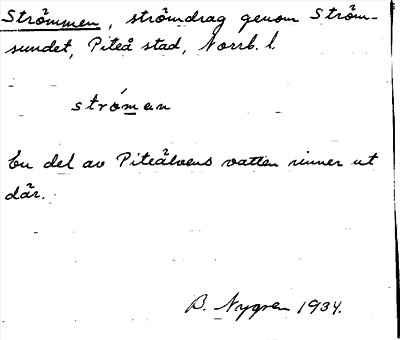 Strömmen, strömdrag genom Ström-
sundet, Piteå stad, Norrb. l.
stróman
En del av Piteälvens vatten rinner ut
där.
B. Nygren 1934.